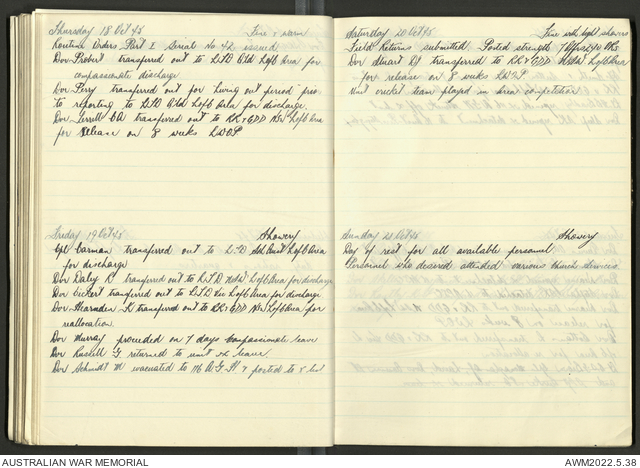 Thursday 18 Oct 45 Fine & warm
Routine Orders Part I Serial No 42 issued
Dvr Probert transferred out to LTD Qld LofC Area for
compassionate discharge
Dvr Perry transferred out for living out period prior
to reporting to LTD Qld LofC Area for discharge.
Dvr Terrell CA transferred out to RR&GDD NSW LofC Area
for release on 8 weeks LWOP
Friday 19 Oct 45 Showery
Cpl Carman transferred out to LTD LofC Area
for discharge
Dvr Daley R transferred out to LTD NSW LofC Area for discharge
Dvr Eickert transferred out to LTD Vic LofC Area for discharge
Dvr Shearsden K transferred out to RR&GDD NSW LofC Area for
reallocation.
Dvr Murray proceeded on 7 days compassionate leave
Dvr Russell G returned to unit ex leave.
Dvr Schmidt W evacuated to 116 A G H & posted to X list
Saturday 20 Oct 45 Fine with light showers
Field Returns submitted Posted strength 7 Offrs 240 ORs
Dvr Stuart DJ transferred to RR&GDD NSW LofC Area
for release on 8 weeks LWOP
Unit cricket team played in area competition
Sunday 21 Oct 45 Showery
Day of rest for all available personnel
Personnel who desired attended various church services.
AUSTRALIAN WAR MEMORIAL
AWM2022.5.38